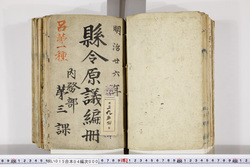 明治廿六年
呂第一種
縣令原議編冊
内務部
第三課